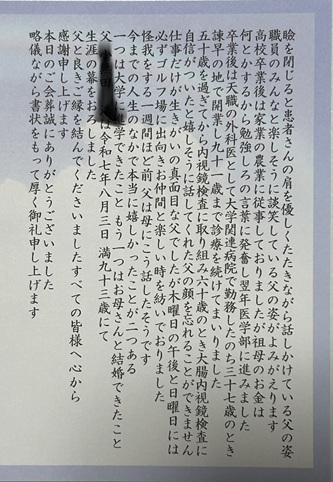 瞼を閉じると患者さんの肩を優しくたたきながら話しかけている父の姿
職員のみんなと楽しそうに談笑している父の姿がよみがえります
高校卒業後は家業の農業に従事しておりましたが祖母のお金は
何とかするから勉強しろの言葉に発奮し翌年医学部に進みました
卒業後は天職の外科医として大学関連病院で勤務したのち三十七歳のとき
諫早の地で開業し九十一歳まで診療を続けてまいりました
五十歳を過ぎてから内視鏡検査に取り組み六十歳のとき大腸内視鏡検査に
自信がついたと嬉しそうに話してくれた父の顔を忘れることができません
仕事だけが生きがいの真面目な父でしたが木曜日の午後と日曜日には
必ずゴルフ場に出向きお仲間と楽しい時を紡いでおりました
怪我をする一週間ほど前 父は母にこう話したそうです
今までの人生のなかで本当に嬉しかったことが二つある
一つは大学に進学できたこと もう一つはお母さんと結婚できたこと
父 は令和七年八月三日 満九十三歳にて
生涯の幕をおろしました
父と良きご縁を結んでくださいましたすべての皆様へ心から
感謝申し上げます
本日のご会葬誠にありがとうございました
略儀ながら書状をもって厚く御礼申し上げます